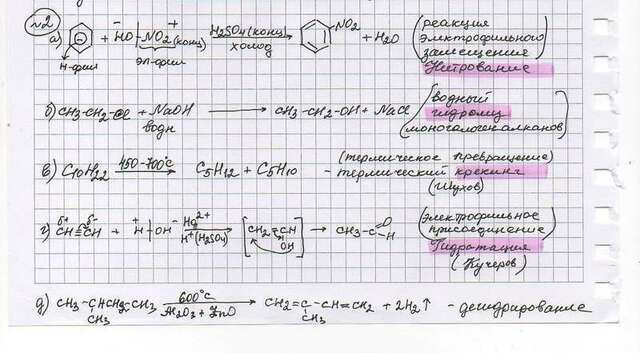 №2
а) + HO⁻ | NO₂⁺ (конц) H₂SO₄(конц) холод NO₂ + H₂O (реакция электрофильного замещения) Нитрование
эл-фил
б) CH₃-CH₂-Cl + NaOH → CH₃-CH₂-OH + NaCl (водный гидролиз моногалогеналканов)
водн
в) C₁₀H₂₂ 450-700°C → C₅H₁₂ + C₅H₁₀ - (термическое превращение) термический крекинг (Шухов)
г) CH≡CH δ+ δ- + H⁺ | OH⁻ Hg²⁺ H⁺(H₂SO₄) → [CH₂=CH OH] → CH₃-C O H (электрофильное присоединение) Гидратация (Кучеров)
д) CH₃-CHCH₂-CH₃ 600°C → CH₂=C-CH=CH₂ + 2H₂↑ - дегидрирование
CH₃ Al₂O₃ + ZnO CH₃